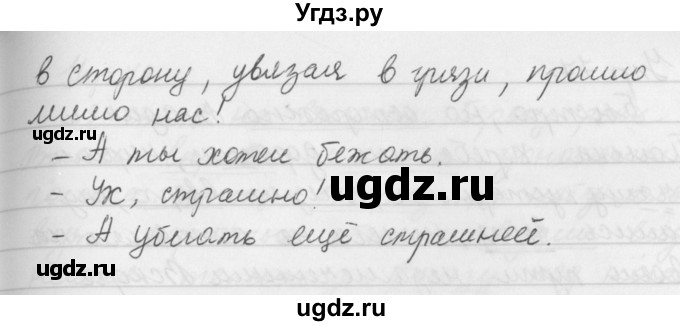 Угдз.ру
в сторону, увязая в грязи, прошло
мимо нас!
угдз.ru
- А ты хотел бежать.
- Ух, страшно!
ugdz.ru
- А убегать ещё страшней.
ugdz.ru
ugdz.ru